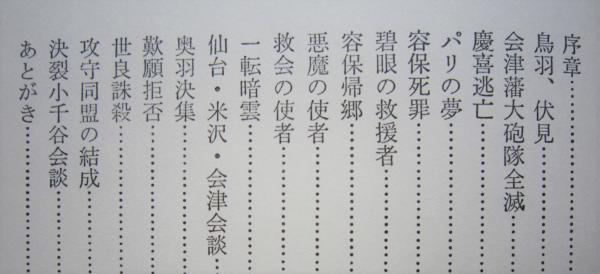 序章……………
鳥羽、伏見……………
会津藩大砲隊全滅……………
慶喜逃亡……………
パリの夢……………
容保死罪……………
碧眼の救援者……………
容保帰郷……………
悪魔の使者……………
救会の使者……………
一転暗雲……………
仙台・米沢・会津会談……………
奥羽決集……………
歎願拒否……………
世良誅殺……………
攻守同盟の結成……………
決裂小千谷会談……………
あとがき……………